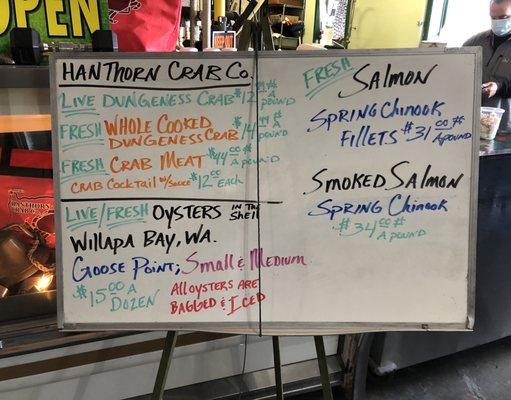 OPEN
HANTHORN CRAB CO.
LIVE DUNGENESS CRAB $12.99 # A POUND
FRESH WHOLE COOKED DUNGENESS CRAB $14.99 # A POUND
FRESH CRAB MEAT $44.00 # A POUND
CRAB COCKTAIL W/SAUCE $12.00 EACH
LIVE/FRESH OYSTERS IN THE SHELL
WILLAPA BAY, WA.
GOOSE POINT; SMALL & MEDIUM
$15.00 A DOZEN
ALL OYSTERS ARE
BAGGED & ICED
FRESH SALMON
SPRING CHINOOK
FILLETS $31.00 # A POUND
SMOKED SALMON
SPRING CHINOOK
$34.00 # A POUND